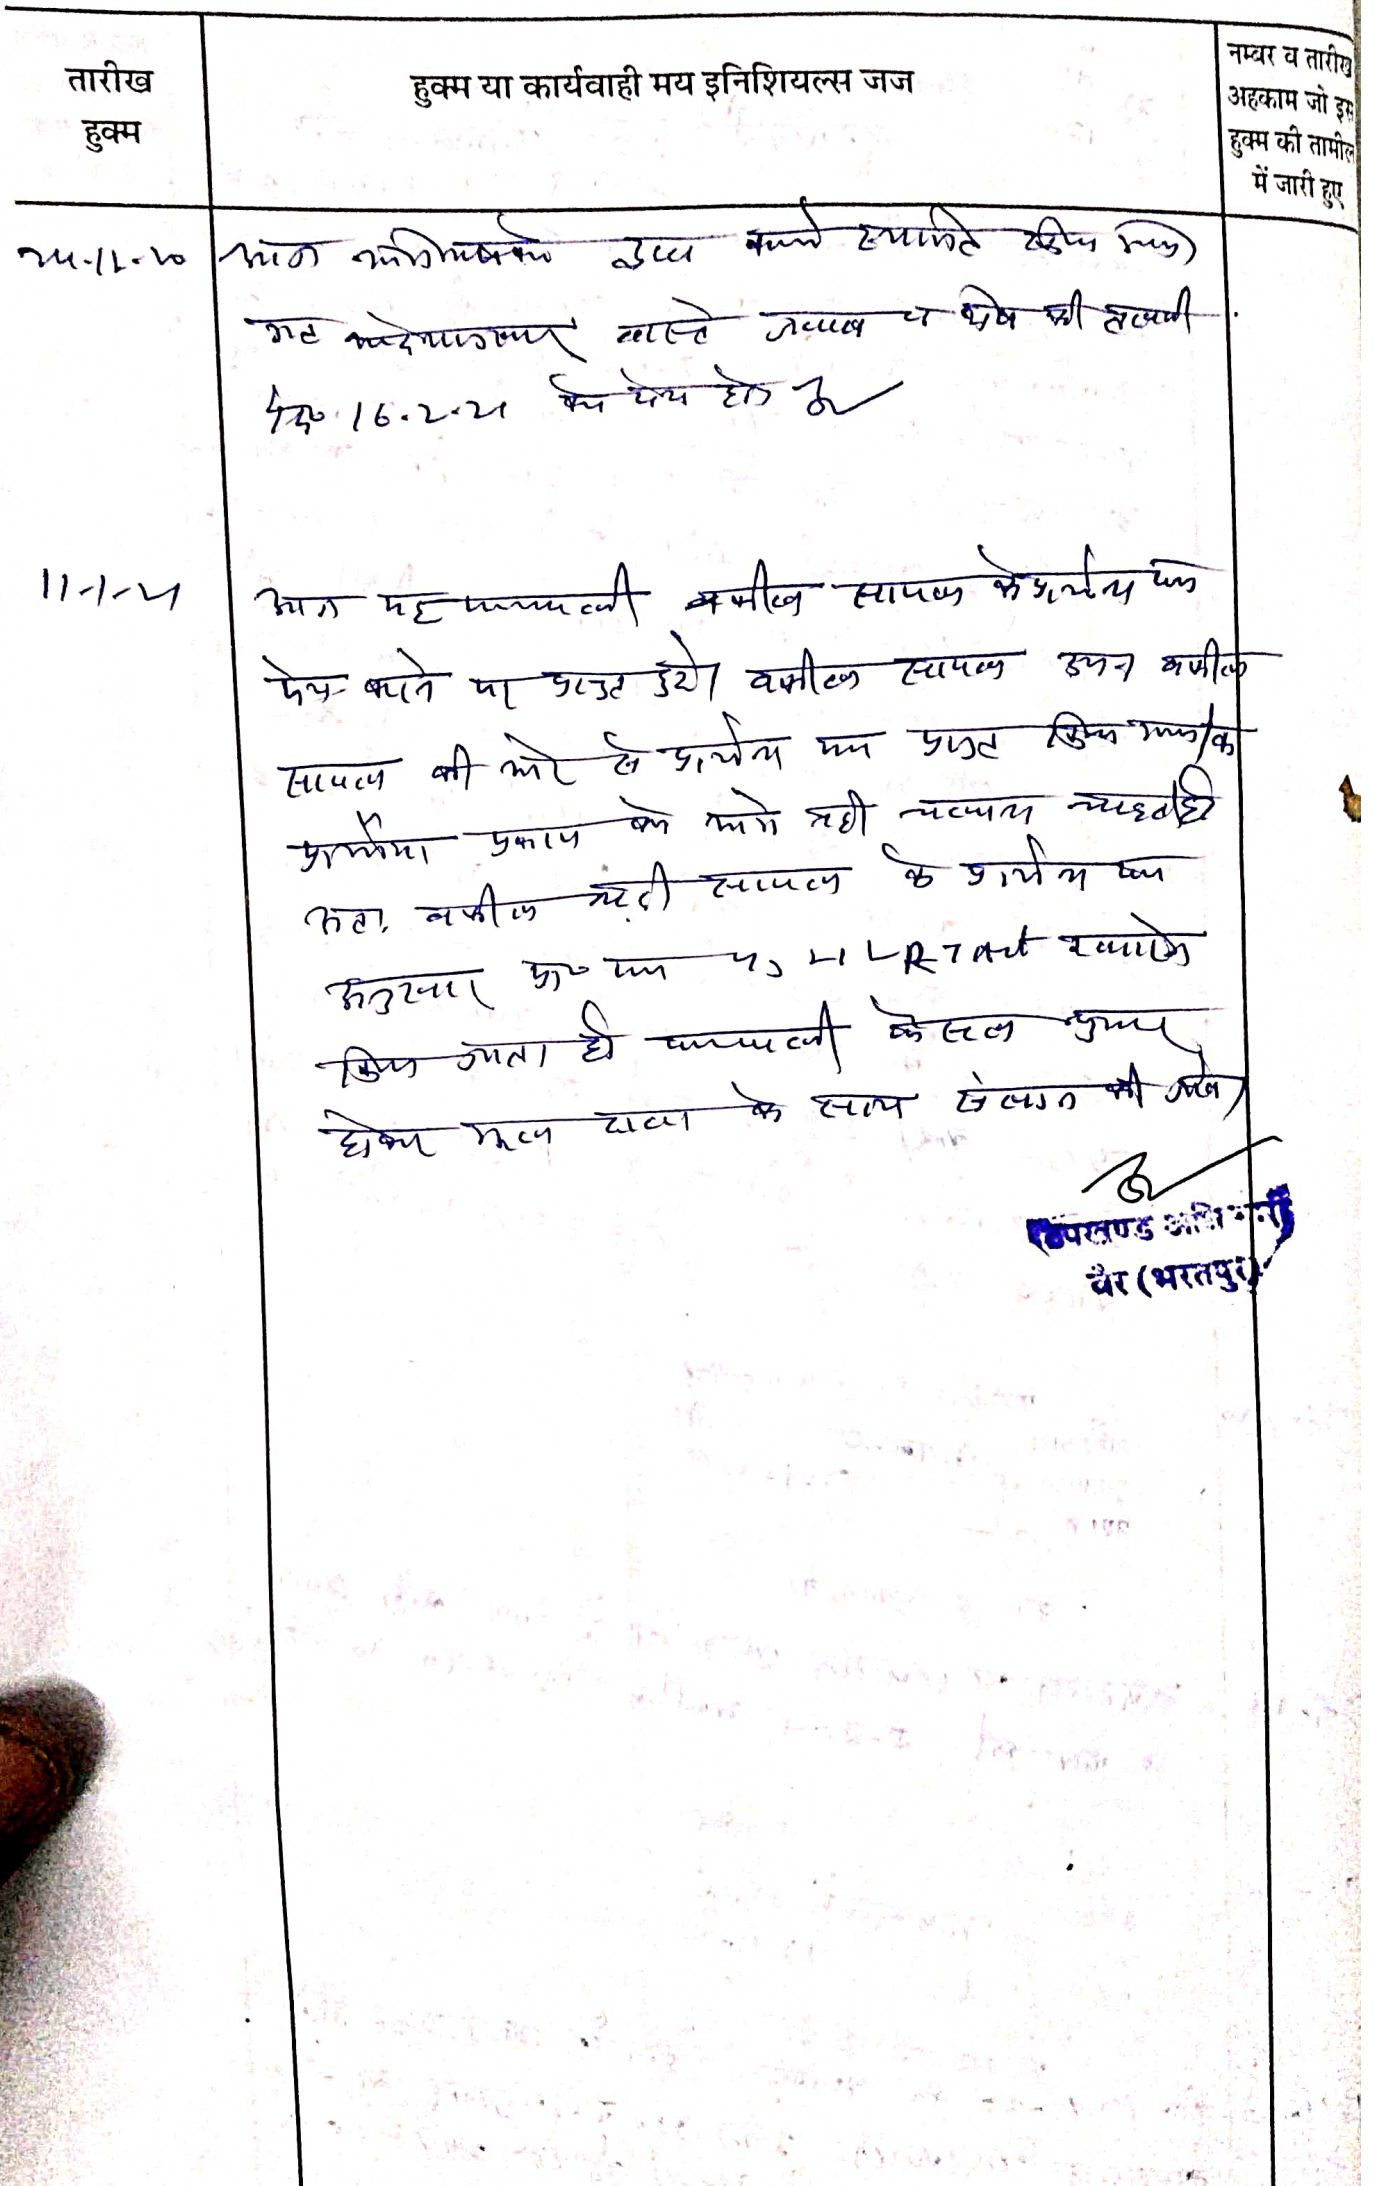 तारीख
हुक्म
हुक्म या कार्यवाही मय इनिशियल्स जज
नम्बर व तारीख
अहकाम जो इस
हुक्म की तामील
में जारी हुए
आज अभिभाषको द्वारा कार्य स्थगित किया गया
अतः आदेशानुसार वास्ते जवाब व शेष की तलबी
16.2.21 को पेश हो
11-1-21
आज यह पत्रावली वकील सायल के प्रार्थना पत्र
पेश करने पर प्रस्तुत हुयी। वकील सायल उप० वकील
सायल की ओर से प्रार्थना पत्र प्रस्तुत किया गया कि
प्रार्थीया प्रकरण को आगे नही चलाना चाहती है
अतः वकील सायल के प्रार्थना पत्र
अनुसार प्रा० पत्र RT Act खारिज
किया जाता है पत्रावली फैसल शुमार
होकर मूल दावा के साथ संलग्न की जावे।
उपखण्ड अधिकारी
वैर (भरतपुर)